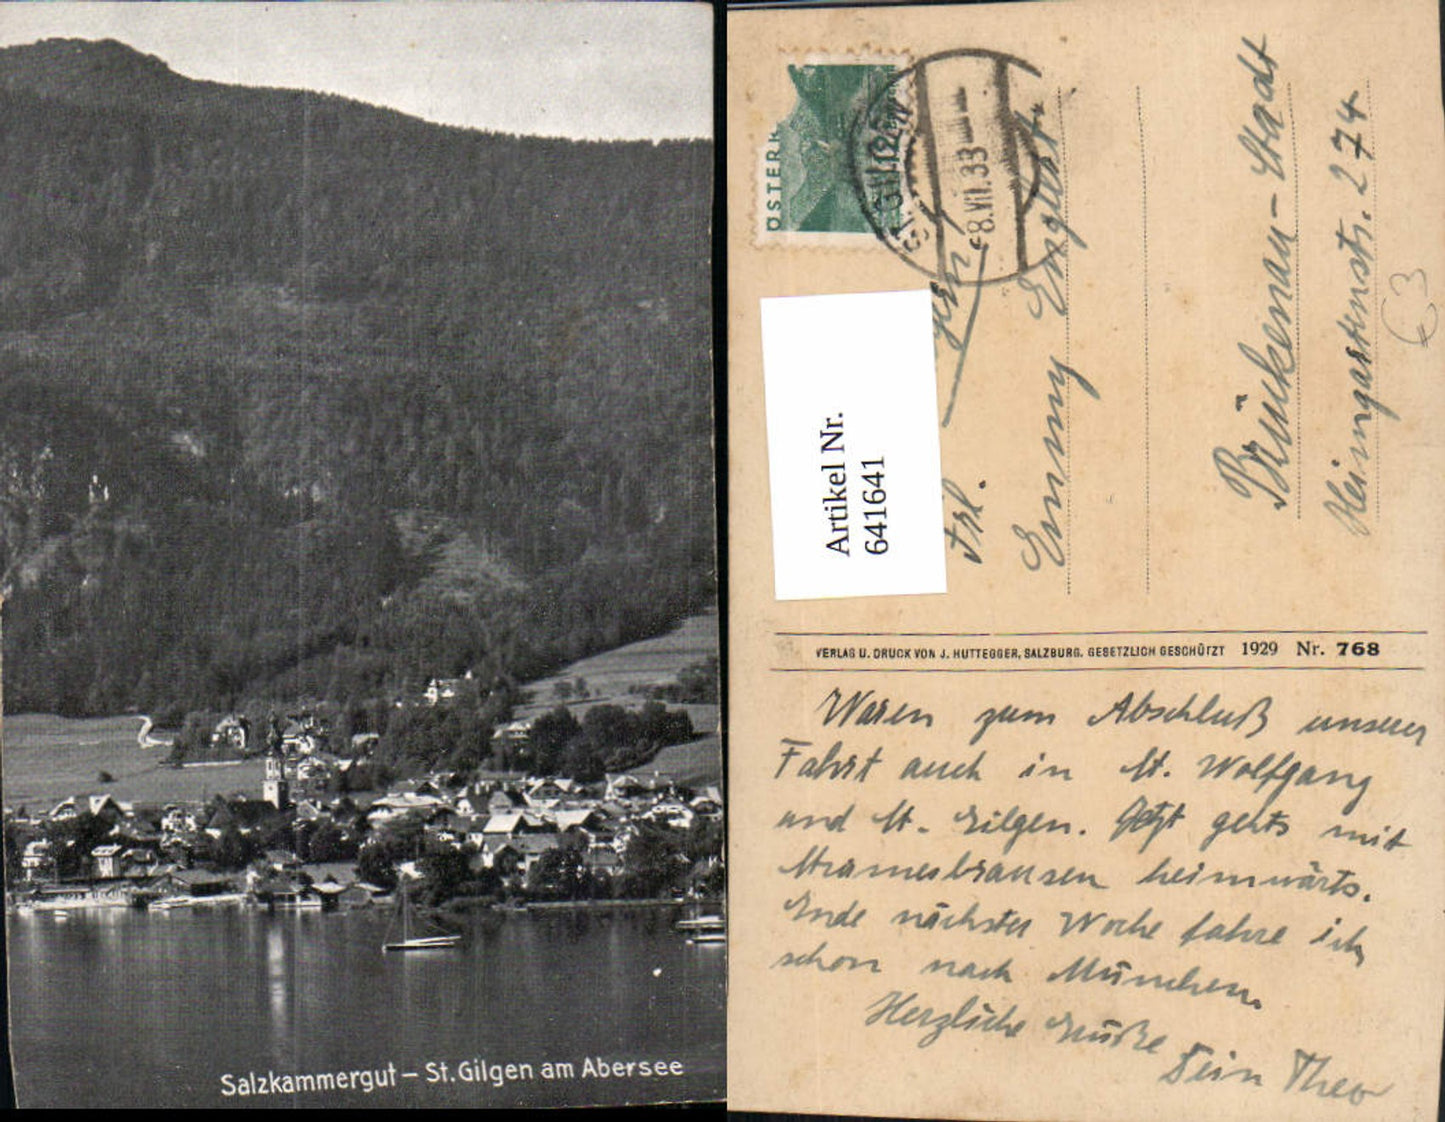 Salzkammergut – St. Gilgen am Abersee
ÖSTERR
ST. GILGEN
-8.VII.33
Artikel Nr.
641641
Frl.
Emmy Englert
Brückenau-Stadt
Heimgartenstr. 274
€3
VERLAG U. DRUCK VON J. HUTTEGGER, SALZBURG. GESETZLICH GESCHÜTZT 1929 Nr. 768
Waren zum Abschluß unserer
Fahrt auch in St. Wolfgang
und St. Gilgen. Jetzt gehts mit
heimwärts.
Ende nächster Woche fahre ich
schon nach München.
Herzliche Grüße
Dein Theo